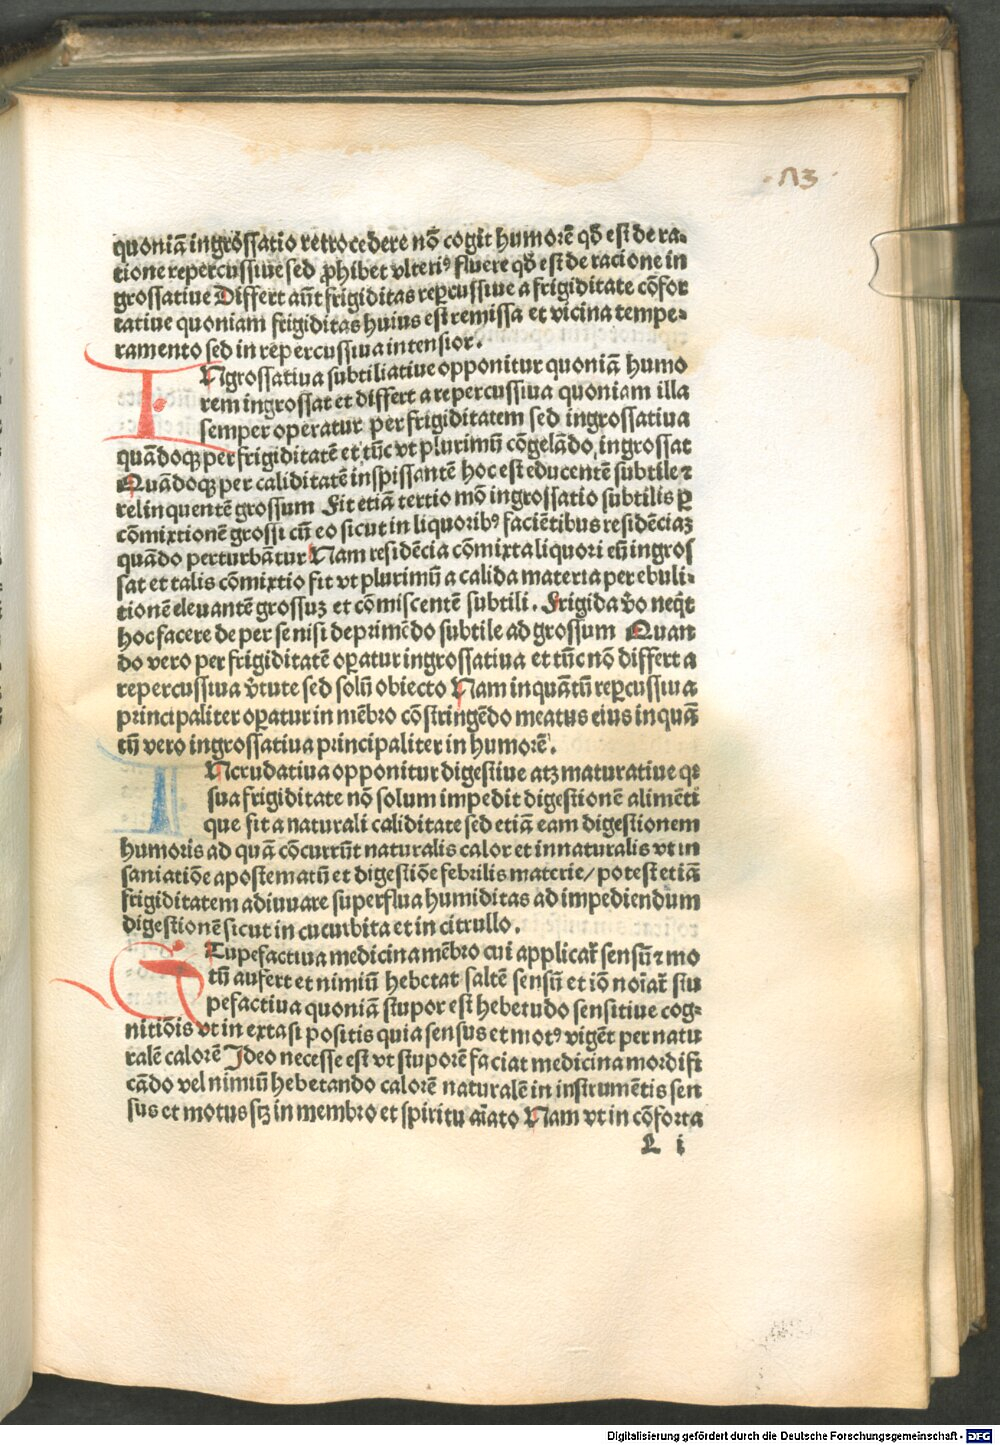 ·113·
quoniā ingrossatio retrocedere nō cogit humorē qđ est de ra-
tione repercussiue sed ꝓhibet vlteriꝰ fluere qđ est de racione in
grossatiue Differt aūt frigiditas reꝑcussiue a frigiditate cōfor
tatiue quoniam frigiditas huius est remissa et vicina tempe-
ramento sed in repercussiua intensior.
INgrossatiua subtiliatiue opponitur quoniā humo
rem ingrossat et differt a repercussiua quoniam illa
semper operatur per frigiditatem sed ingrossatiua
quādoqꝫ per frigiditatē et tūc vt plurimū cōgelādo, ingrossat
Quādoqꝫ per caliditatē inspissantē hoc est educentē subtile ⁊
relinquentē grossum Fit etiā tertio mō ingrossatio subtilis ꝑ
cōmixtionē grossi cū eo sicut in liquoribꝰ faciētibus residēciaꝫ
quādo perturbātur Nam residēcia cōmixta liquori eū ingros
sat et talis cōmixtio fit vt plurimū a calida materia per ebuli-
tionē eleuantē grossuꝫ et cōmiscentē subtili. Frigida v̄o neq̄t
hoc facere de per se nisi deprimēdo subtile ad grossum Quan
do vero per frigiditatē oꝑatur ingrossatiua et tūc nō differt a
repercussiua v̄tute sed solū obiecto Nam inquātū reꝑcussiua
principaliter oꝑatur in mēbro cōstringēdo meatus eius inquā
tū vero ingrossatiua principaliter in humorē.
INcrudatiua opponitur digestiue atꝫ maturatiue qꝛ
sua frigiditate nō solum impedit digestionē alimēti
que fit a naturali caliditate sed etiā eam digestionem
humoris ad quā cōcurrūt naturalis calor et innaturalis vt in
saniatiōe apostematū et digestiōe febrilis materie/ potest etiā
frigiditatem adiuuare superflua humiditas ad impediendum
digestionē sicut in cucurbita et in citrullo.
STupefactiua medicina mēbro cui applicat̄ sensū ⁊ mo
tū aufert et nimiū hebetat saltē sensū et iō noīat̄ stu
pefactiua quoniā stupor est hebetudo sensitiue cog-
nitiōis vt in extasi positis quia sensus et motꝰ vigēt per natu
ralē calorē Ideo necesse est vt stuporē faciat medicina mordifi
cādo vel nimiū hebetando calorē naturalē in instrumētis sen
sus et motus sꝫ in membro et spiritu aīato Nam vt in cōforta
L i
Digitalisierung gefördert durch die Deutsche Forschungsgemeinschaft - DFG